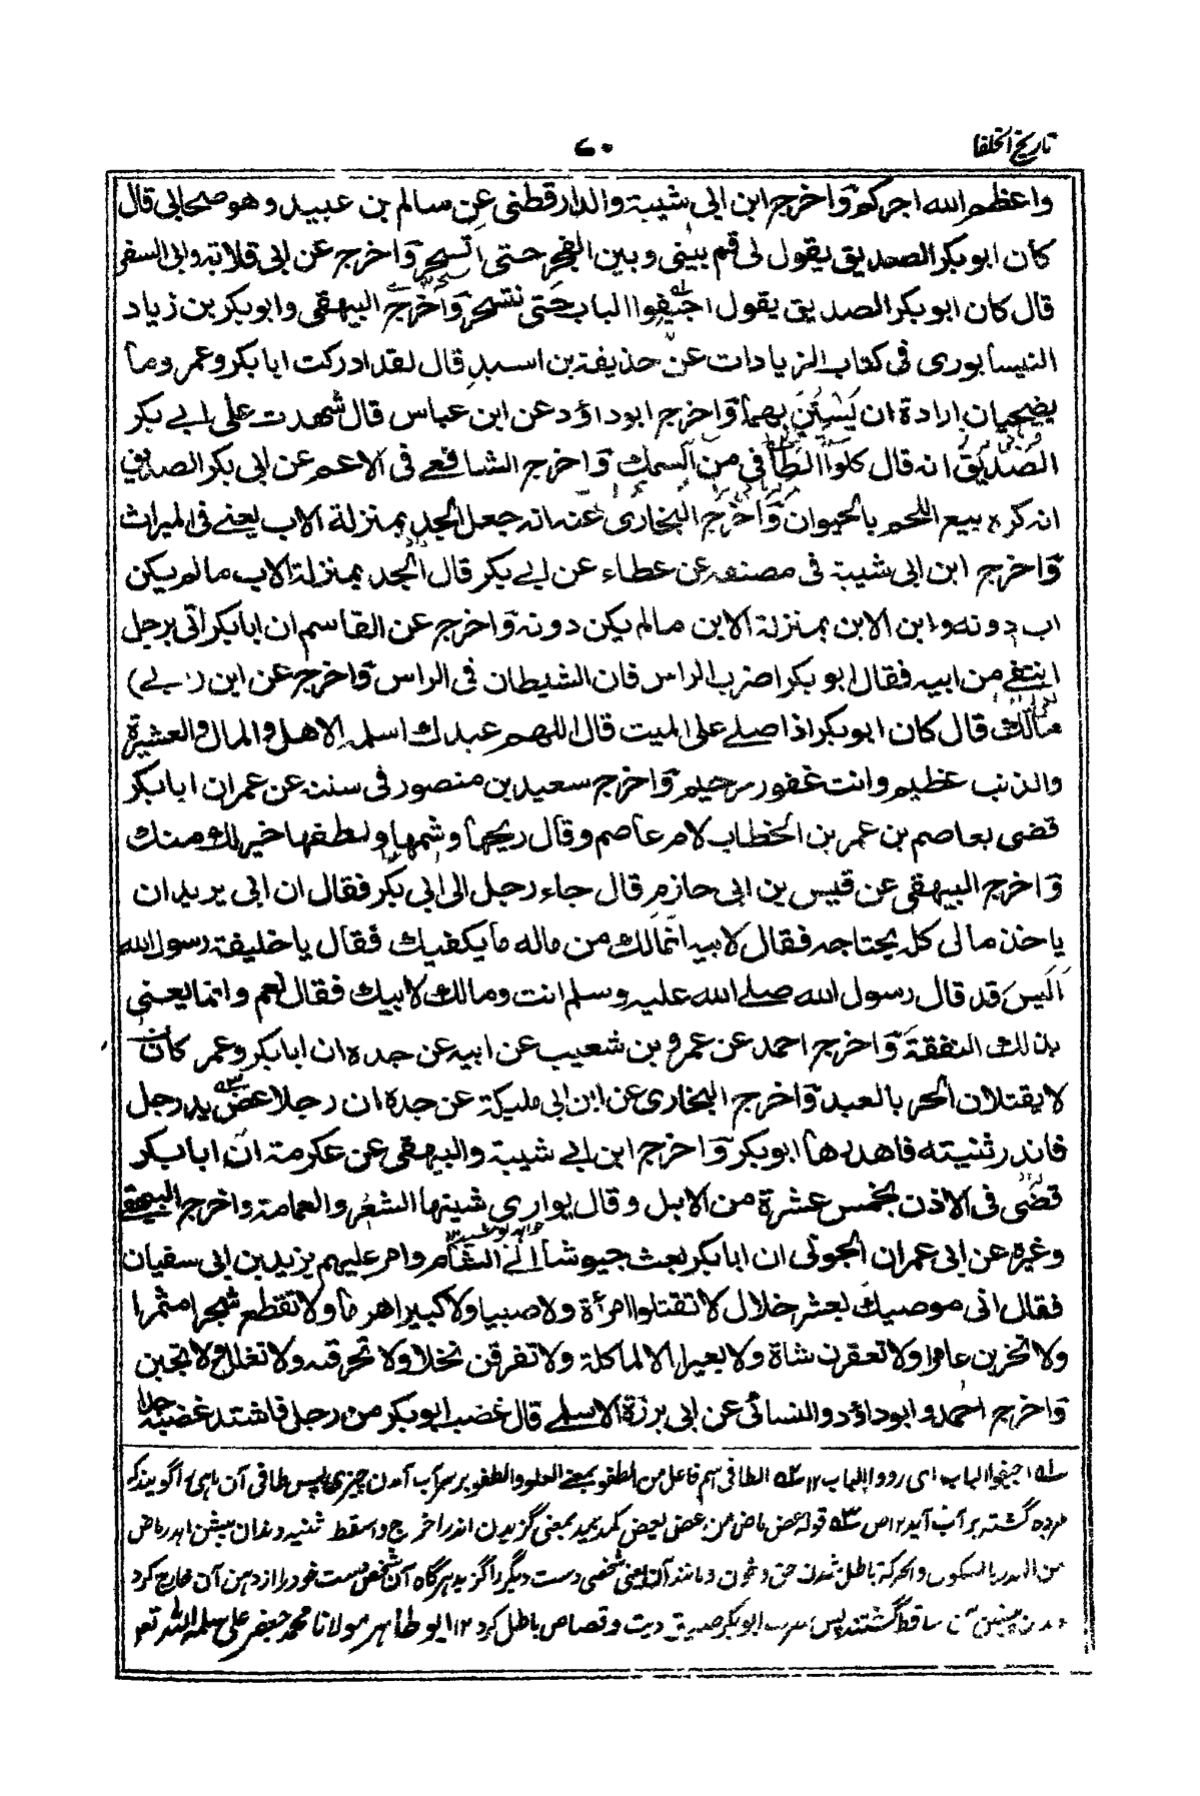 تاریخ الخلفا
۷۰
واعظم الله اجركم واخرج ابن ابی شيبة والدارقطنی عن سالم بن عبيد وهو صحابی قال
كان ابو بكر الصديق يقول لی قم بينی و بين الفجر حتی اتسحر واخرج عن ابی قلابة وابی السفر
قال كان ابو بكر الصديق يقول اجيفوا الباب حتی نتسحر واخرج البيهقی وابو بكر بن زياد
النيسابوری فی كتاب الزيادات عن حذيفة بن اسيد قال لقد ادركت ابا بكر و عمر وما
يضحيان ارادة ان يستن بهما واخرج ابو داؤد عن ابن عباس قال شهدت علی ابے بكر
الصديق انه قال كلوا الطافی من السمك واخرج الشافعے فی الام عن ابی بكر الصديق
انه كره بيع اللحم بالحيوان واخرج البخاری عنه انه جعل الجد بمنزلة الاب يعنے فی الميراث
واخرج ابن ابی شيبة فی مصنفه عن عطاء عن ابے بكر قال الجد بمنزلة الاب مالم يكن
اب دونه وابن الابن بمنزلة الابن مالم يكن دونه واخرج عن القاسم ان ابا بكر اتی برجل
انتفے من ابيه فقال ابو بكر اضرب الراس فان الشيطان فی الراس واخرج عن ابن ابے
مالك قال كان ابو بكر اذا صلے علی الميت قال اللهم عبدك اسلمه الاهل والمال والعشيرة
والذنب عظيم وانت غفور رحيم واخرج سعيد بن منصور فی سننه عن عمر ان ابا بكر
قضی بعاصم بن عمر بن الخطاب لام عاصم وقال ريحها وشمها ولطفها خير له منك
واخرج البيهقی عن قيس بن ابی حازم قال جاء رجل الی ابی بكر فقال ان ابی يريد ان
ياخذ مالی كله يحتاجه فقال لابيه انما لك من ماله ما يكفيك فقال يا خليفة رسول الله
اليس قد قال رسول الله صلے الله عليه وسلم انت ومالك لابيك فقال نعم وانما يعنی
بذلك النفقة واخرج احمد عن عمرو بن شعيب عن ابيه عن جده ان ابا بكر وعمر كان
لا يقتلان الحر بالعبد واخرج البخاری عن ابن ابی مليكة عن جده ان رجلا عض يد رجل
فاندر ثنيته فاهدرها ابو بكر واخرج ابن ابے شيبة والبيهقی عن عكرمة ان ابا بكر
قضی فی الاذن بخمس عشرة من الابل وقال يواری شينها الشعر والعمامة واخرج البيهقے
وغيره عن ابی عمران الجونی ان ابا بكر بعث جيوشا الے الشام وامر عليهم يزيد بن ابی سفيان
فقال انی موصيك بعشر خلال لا تقتلوا امرأة ولا صبيا ولا كبيرا هرما ولا تقطع شجرا مثمرا
ولا تخربن عامرا ولا تعقرن شاة ولا بعيرا الا لماكلة ولا تفرقن نخلا ولا تحرقنه ولا تغلل ولا تجبن
واخرج احمد وابو داؤد والنسائی عن ابی برزة الاسلمے قال غضب ابو بكر من رجل فاشتد غضبه جدا
اجيفوا الباب ای ردوا الباب ۱۲ الطافی اسم فاعل من الطفو بمعنے العلو والطفو بر سر آب آمدن چیزی پس طافی آن ماہی را گویند که
مرده گشته بر آب آید ۱۲ ص قوله عض ماض من عض يعض بمعنی گزیدن اندر اخرج واسقط ثنيه دندان پیشین اهدر ماض
من الهدر بالسکون والحرکة باطل شدن حق و خون و مانند آن یعنی شخصی دست دیگر را گزید هرگاه آن شخص دست خود را از دهن آن خارج کرد
ساقط گشتند پس ابو بکر صدیق دیت و قصاص باطل کرد ۱۲ ابو طاهر مولانا محمد جعفر علی سلمه الله تع